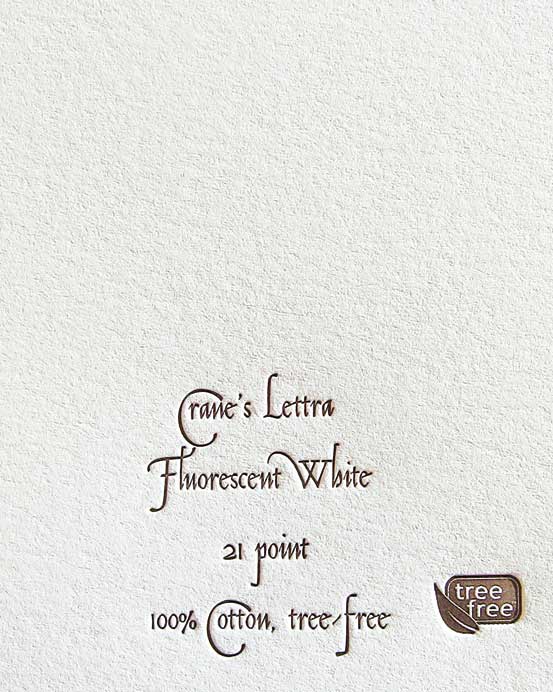 Crane's Lettra
Fluorescent White
21 point
100% Cotton, tree-free
tree
free